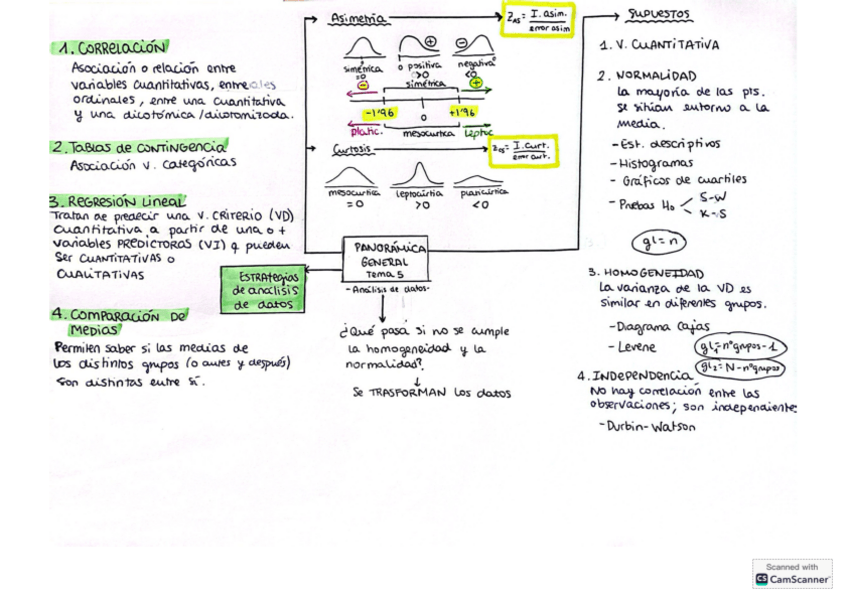 1. CORRelACIÓN
Asociación o relación entre
variables cuantitativas, entre
ordinales, entre una cuantitativa
y una dicotómica / dicotomizada.
2. Tablas de contingencia
Asociación v. categóricas
3. Regresión lineal
Tratan de predecir una v. CRITERIO (VD)
cuantitativa a partir de una o +
variables PREDICTORAS (VI) q pueden
ser CUANTITATIVAS o
CUALITATIVAS
4. Comparación de
Medias
Permiten saber si las medias de
los distintos grupos (o antes y después)
son distintas entre sí.
Asimetría
Z_AS = I. asim. / error asim
simétrica
=0
⊕
o positiva
>0
⊖
negativa
<0
⊖ simétrica ⊕
-1'96 0 +1'96
platic. mesocurtica leptoc
Curtosis
Z_CS = I. curt. / error curt.
mesocurtica
=0
leptocúrtica
>0
planicúrtica
<0
PANORÁMICA
GENERAL
Tema 5
- Análisis de datos -
ESTRATEgias
de análisis
de datos
¿Qué pasa si no se cumple
la homogeneidad y la
normalidad?
↓
Se TRASFORMAN los datos
SUPUESTOS
1. V. CUANTITATIVA
2. NORMALIDAD
La mayoría de las pts.
se sitúan entorno a la
media.
- Est. descriptivos
- Histogramas
- Gráficos de cuartiles
- Pruebas Ho
S-W
K-S
gl = n
3. HOMOGENEIDAD
La varianza de la VD es
similar en diferentes grupos.
- Diagrama cajas
- Levene
gl1 = nº grupos - 1
gl2 = N - nº grupos
4. INDEPENDENCIA
No hay correlación entre las
observaciones; son independiente
- Durbin-Watson
Scanned with
CS CamScanner